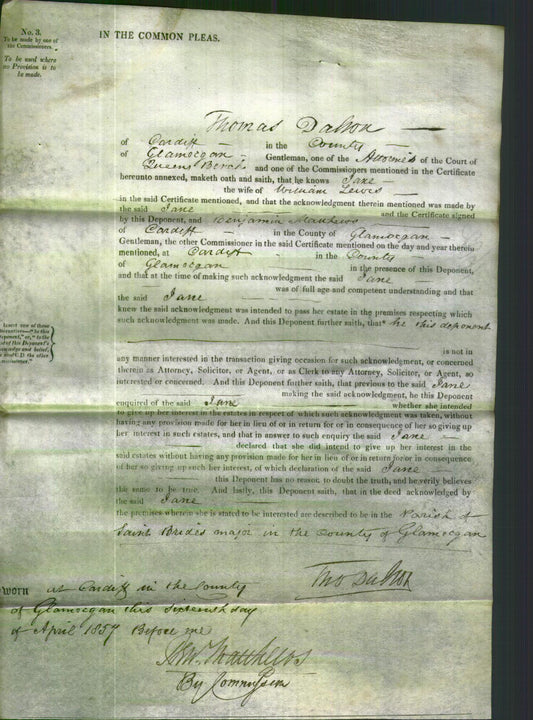 No. 3.
To be made by one of
the Commissioners.
To be used where
no Provision is to
be made.
IN THE COMMON PLEAS.
Thomas Dalton
of Cardiff in the County
of Glamorgan Gentleman, one of the Attornies of the Court of
Queens Bench and one of the Commissioners mentioned in the Certificate
hereunto annexed, maketh oath and saith, that he knows Jane
the wife of William Lewis
in the said Certificate mentioned, and that the acknowledgment therein mentioned was made by
the said Jane and the Certificate signed
by this Deponent, and Benjamin Matthews
of Cardiff in the County of Glamorgan
Gentleman, the other Commissioner in the said Certificate mentioned on the day and year therein
mentioned, at Cardiff in the County
of Glamorgan in the presence of this Deponent,
and that at the time of making such acknowledgment the said Jane
was of full age and competent understanding and that
the said Jane
knew the said acknowledgment was intended to pass her estate in the premises respecting which
such acknowledgment was made. And this Deponent further saith, that he this deponent
is not in
any manner interested in the transaction giving occasion for such acknowledgment, or concerned
therein as Attorney, Solicitor, or Agent, or as Clerk to any Attorney, Solicitor, or Agent, so
interested or concerned. And this Deponent further saith, that previous to the said Jane
making the said acknowledgment, he this Deponent
enquired of the said Jane whether she intended
to give up her interest in the estates in respect of which such acknowledgment was taken, without
having any provision made for her in lieu of or in return for or in consequence of her so giving up
her interest in such estates, and that in answer to such enquiry the said Jane
declared that she did intend to give up her interest in the
said estates without having any provision made for her in lieu of or in return for or in consequence
of her so giving up such her interest, of which declaration of the said Jane
this Deponent has no reason to doubt the truth, and he verily believes
the same to be true. And lastly, this Deponent saith, that in the deed acknowledged by
the said Jane
the premises wherein she is stated to be interested are described to be in the Parish of
Saint Brides major in the County of Glamorgan
Tho Dalton
worn at Cardiff in the County
of Glamorgan this sixteenth day
of April 1857 Before me
Matthews
By Commission